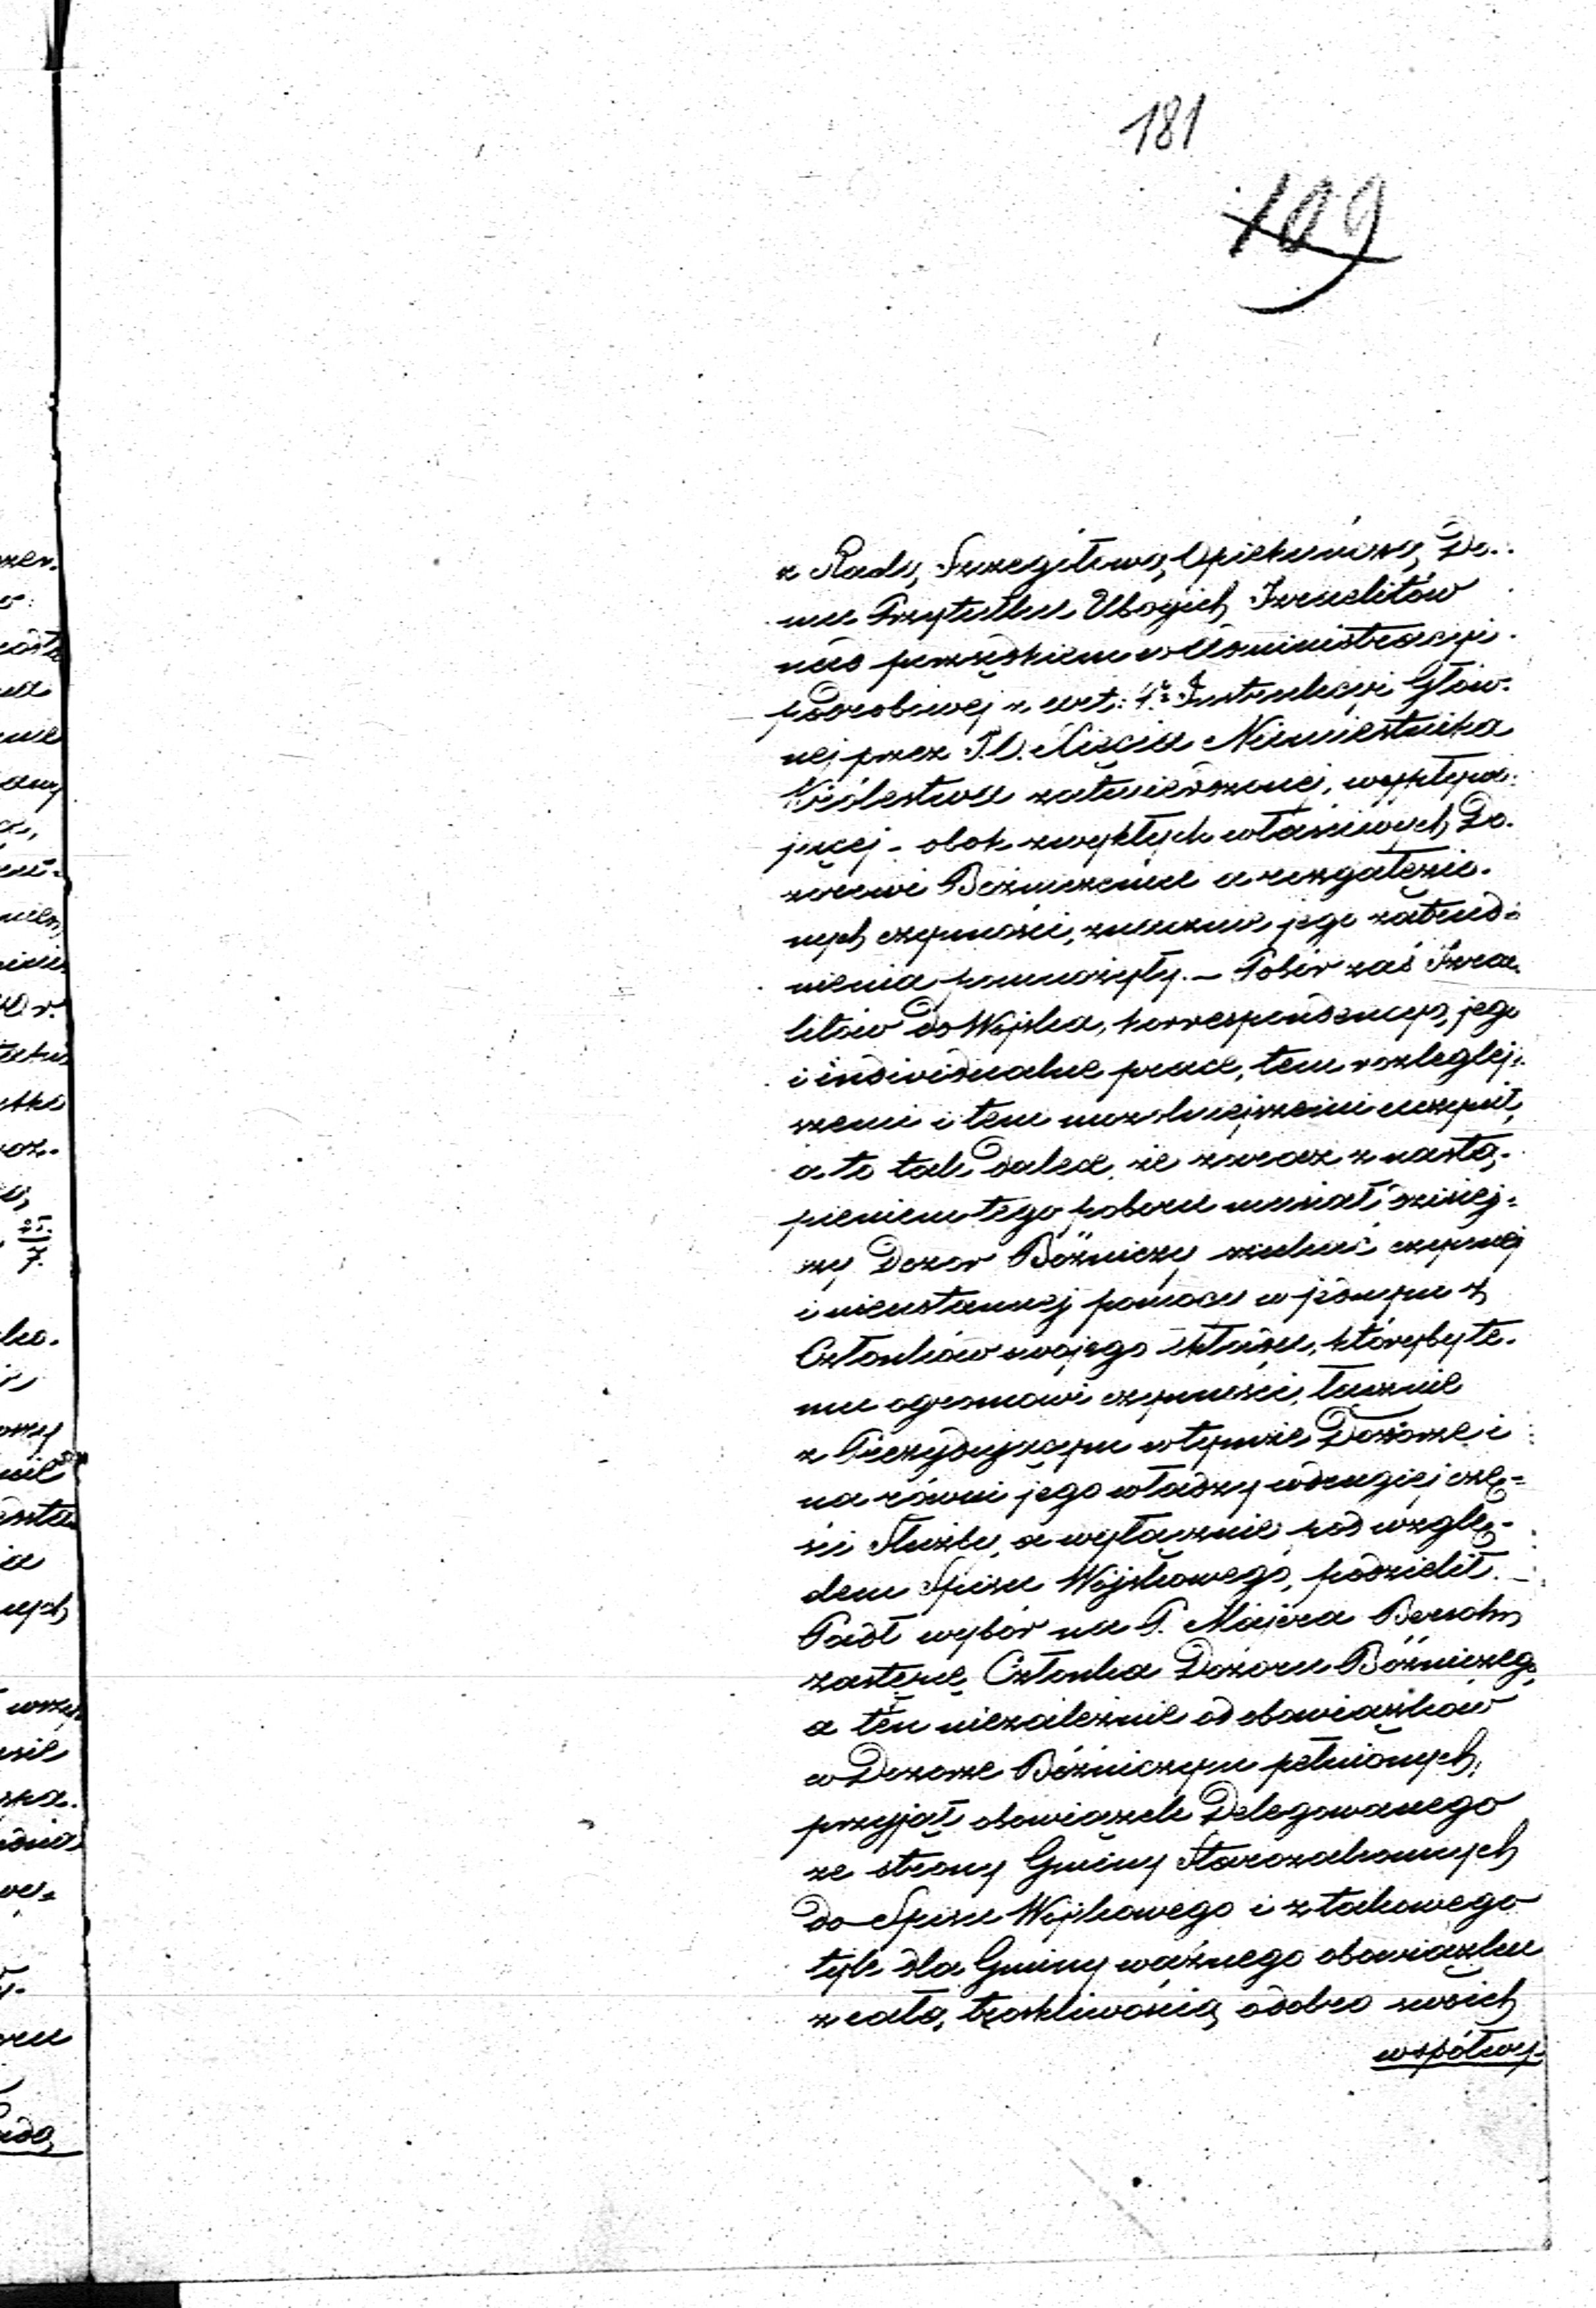 181
109
z Radą Szczegółową Opiekuńczą Do-
mu Przytułku Ubogich Izraelitów
nad porządkiem w Administracyi
podrobiwej z art: 4. Instrukcyi Głów-
nej przez J.O. Xięcia Namiestnika
Królestwa zatwierdzonej, wypływa-
jącej - obok zwykłych właściwych Do-
zorowi Bóżniczemu a rozgałęzio-
nych czynności, znacznie jego zatrud-
nienia pomnożyły. - Pobór zaś Izrae-
litów do Wojska, korrespondencyą jego
i individualne prace, tem rozleglej-
szemi i tem mozolniejszemi uczynił,
a to tak dalece, że zaraz z nastą-
pieniem tego poboru musiał dziniej-
szy Dozor Bóżniczy szukać czynnej
i nieustannej pomocy w jednym z
Członków swojego składu, któryby te-
mu ogromowi czynności, łącznie
z Prezydującym w tymże Dozorze i
na równi jego władzy w drugiej czę-
ści Służby, a wyłącznie pod wzglę-
dem Spisu Wojskowego, podzielił.
Padł wybór na P. Majera Bersohn
zastępcę Członka Dozoru Bóżniczego
a ten niezależnie od obowiązków
w Dozorze Bóżniczym pełnionych,
przyjął obowiązek Delegowanego
ze strony Gminy Starozakonnych
do Spisu Wojskowego i z takowego
tyle dla Gminy ważnego obowiązku
z całą troskliwością o dobro swoich
współwy-